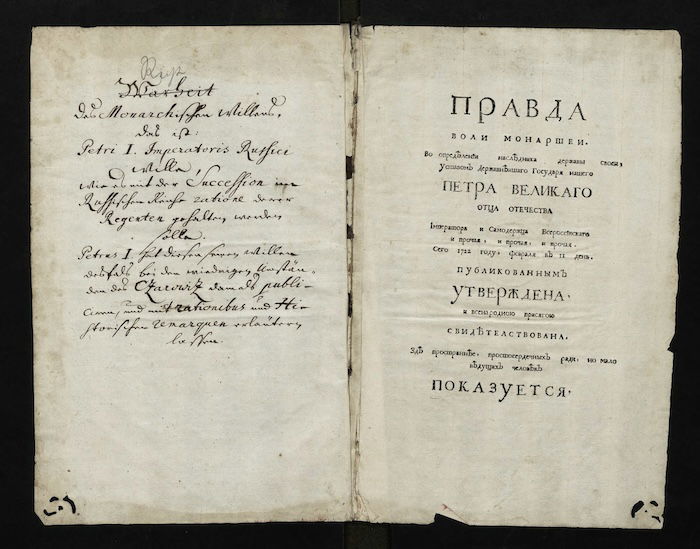 Warheit
des Monarchischen Willens,
das ist:
Petri I. Imperatoris Russici
Wille,
wie es mit der Succession im
Russischen Reiche ratione derer
Regenten gehalten werden
solle.
Petrus I hat diesen seinen Willen
desfals bei den wiedrigen Umstän-
den des Czarowiz damals publi-
ciren, und mit rationibus und Hi-
storischen remarquen erläutern
lassen.
ПРАВДА
ВОЛИ МОНАРШЕИ.
Во опредѣленїи наслѣдника державы своеи,
Уставомъ державнѣишаго Государя нашего
ПЕТРА ВЕЛИКАГО
ОТЦА ОТЕЧЕСТВА
Імператора и Самодержца Всероссїискаго
и прочая, и прочая, и прочая.
Сего 1722 году, февраля въ 11 день.
ПУБЛИКОВАННЫМЪ
УТВЕРЖДЕНА.
и всенародною присягою
СВИДѢТЕЛСТВОВАНА.
Здѣ пространнѣе, простосердечныхъ ради, но мало
вѣдущихъ человѣкъ
ПОКАЗУЕТСЯ.